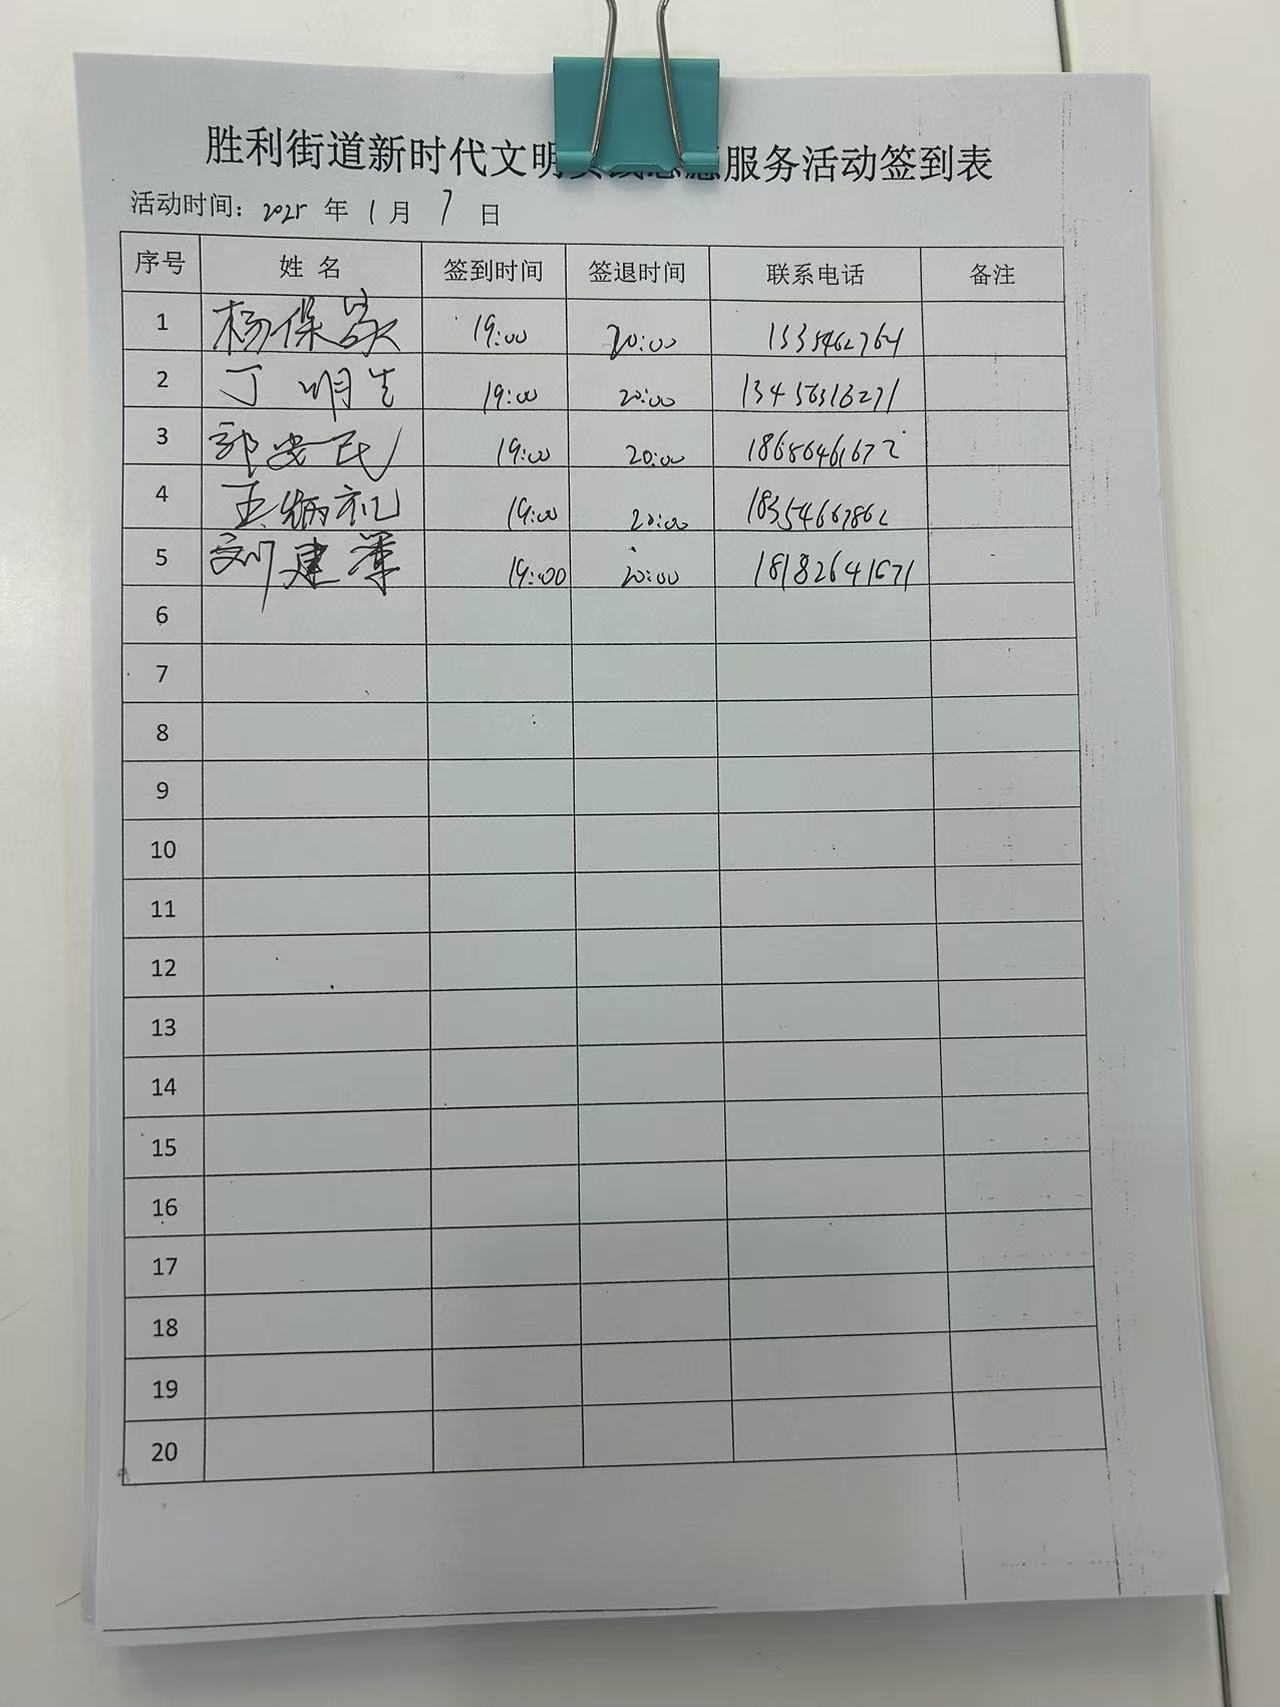 胜利街道新时代文明实践志愿服务活动签到表
活动时间: 2025 年 1 月 7 日
序号 姓 名 签到时间 签退时间 联系电话 备注
1 杨保家 19:00 20:00
2 丁明生 19:00 20:00 13456316271
3 郭安民 19:00 20:00 18656461672
4 王炳礼 19:00 20:00 18354667862
5 刘建军 19:00 20:00 18182641671
6
7
8
9
10
11
12
13
14
15
16
17
18
19
20